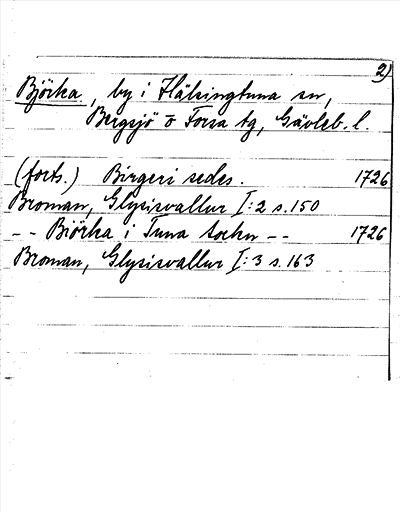 2)
Björka, by i Hälsingtuna sn,
Bergsjö o Forsa tg, Gävleb. l.
(forts.) Birgeri sedes. 1726
Broman, Glysisvallur I:2 s.150
-- Biörka i Tuna sockn -- 1726
Broman, Glysisvallur I:3 s.163